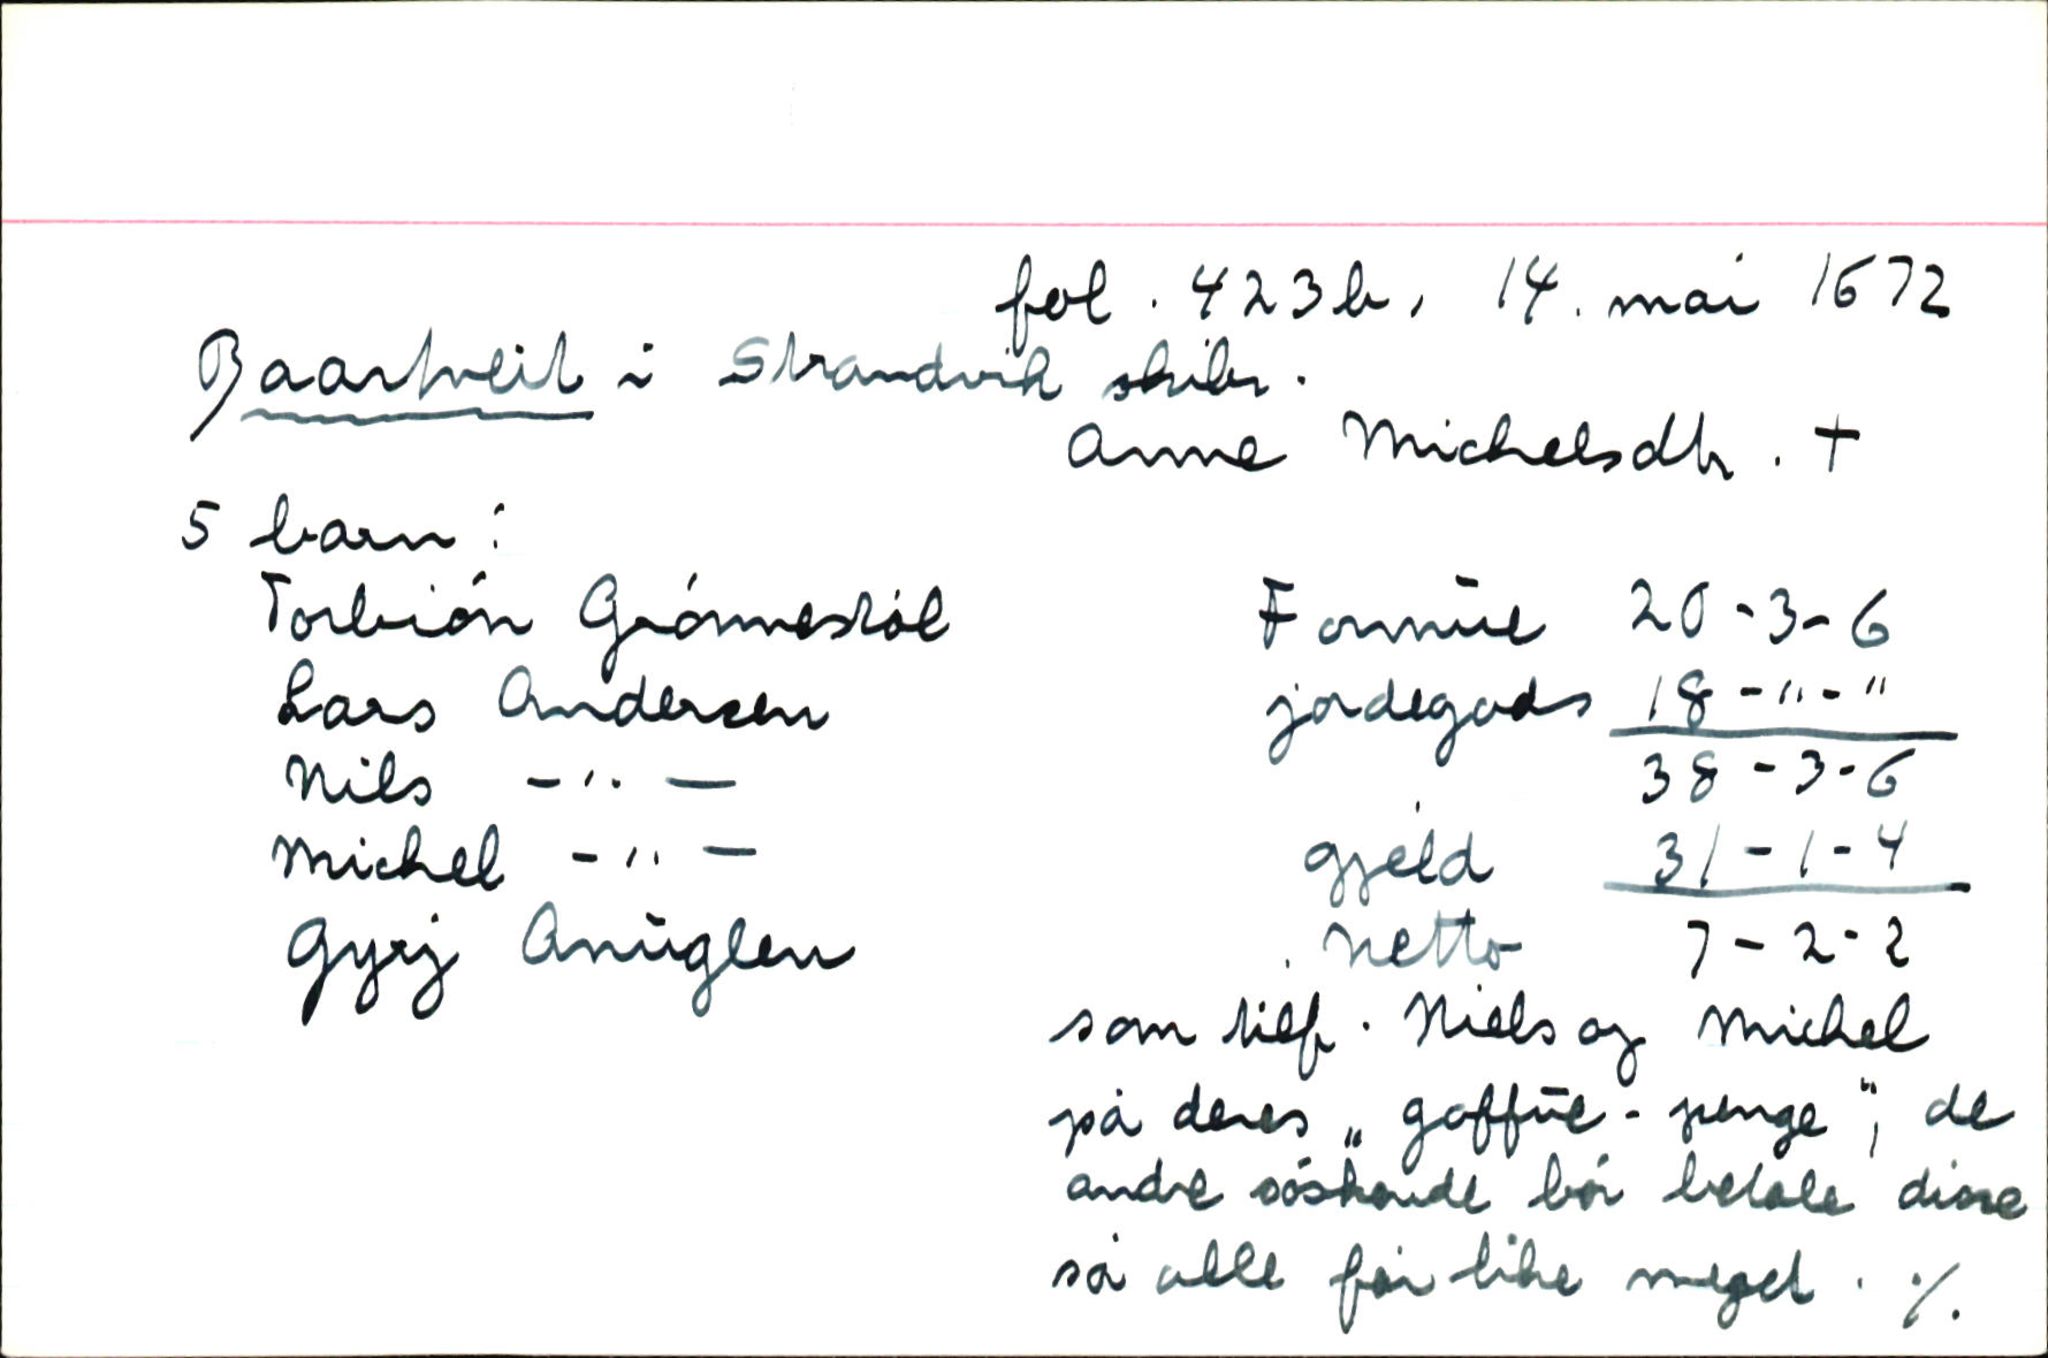 fol. 423b, 14. mai 1672
Baartveit i Strandvik skibr.
Anne Michelsdtr. †
5 barn:
Torbión Grónnestól Formūe 20-3-6
Lars Andersen jordegods 18-"-"
Nils -"- 38-3-6
Michel -"- gjeld 31-1-4
Gyrj Anūglen Netto 7-2-2
som tilf. Niels og Michel
på deres „gaffūe-penge", de
andre sóskende bór betale disse
så alle får like meget. ./.